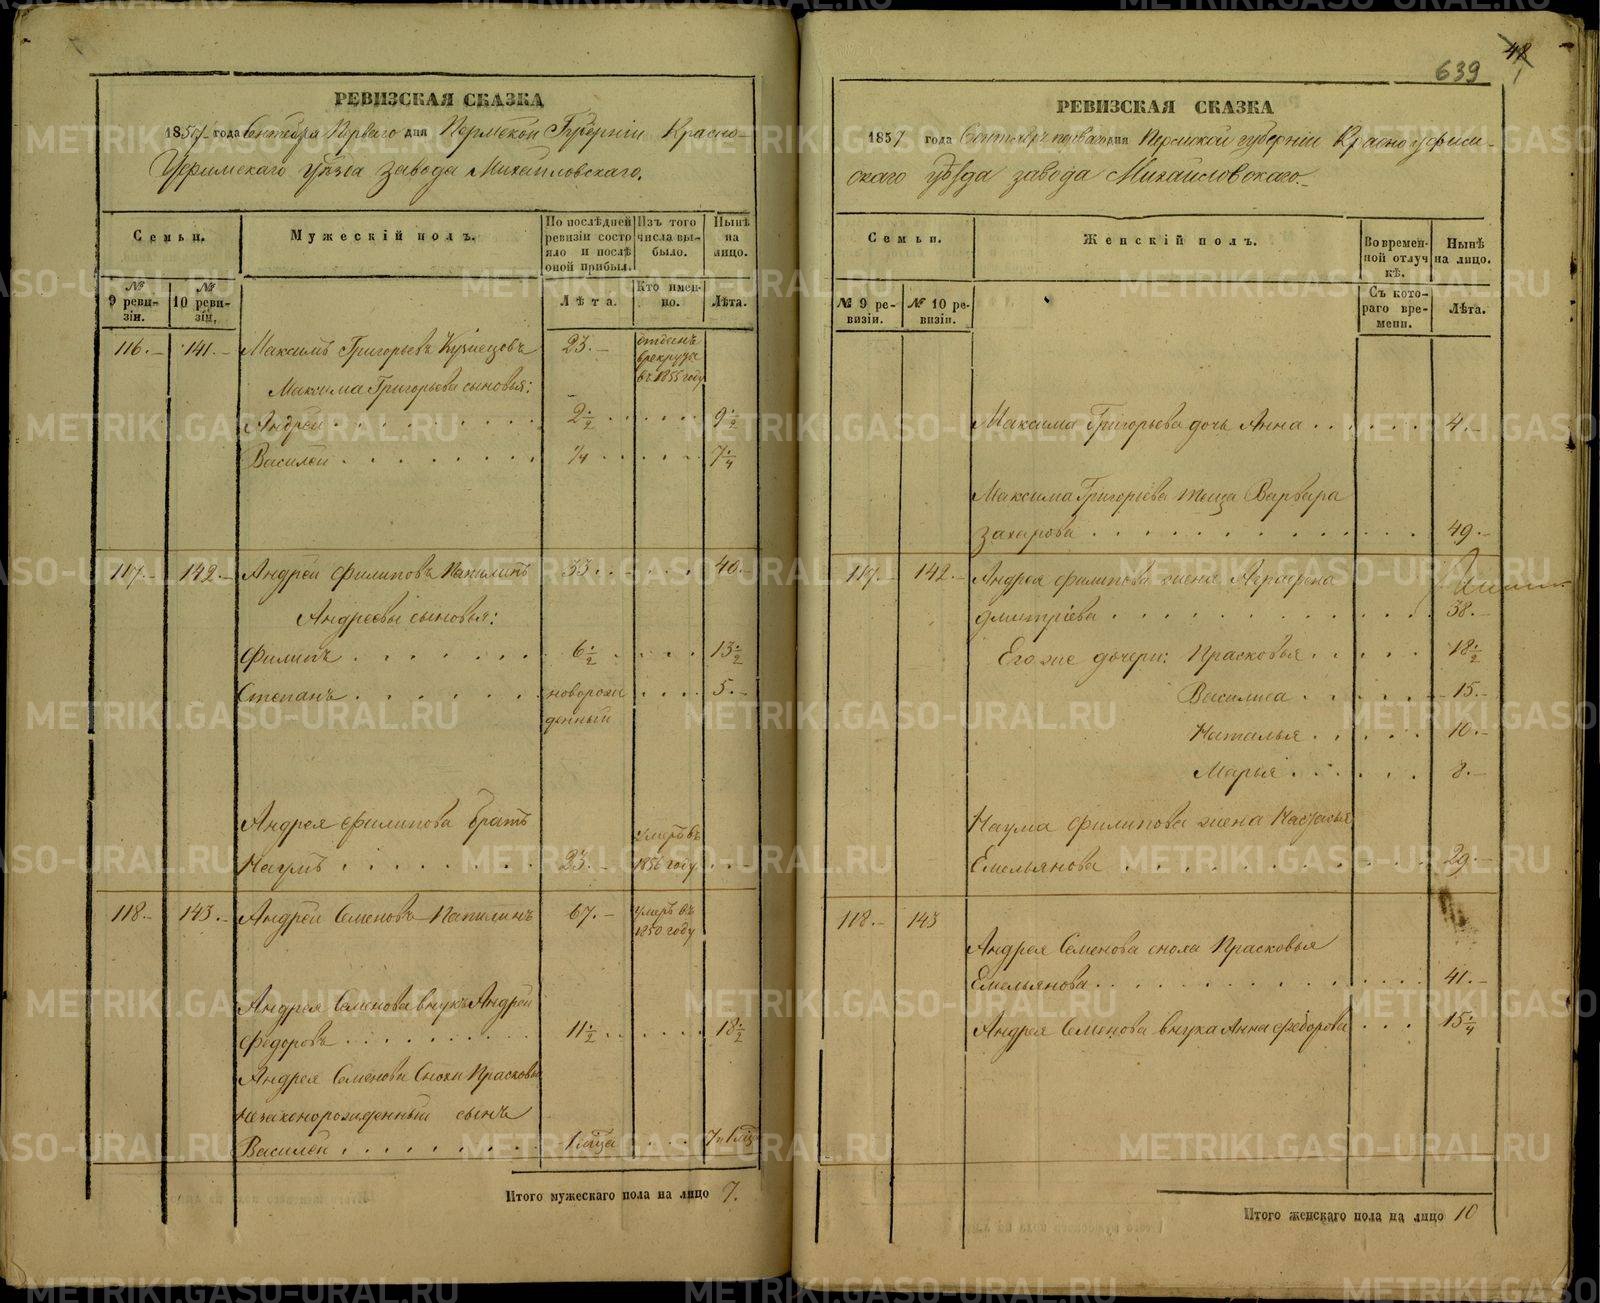 РЕВИЗСКАЯ СКАЗКА
1857 года Сентября Перваго дня Пермской Губерніи Красно-
Уфимскаго Уѣзда завода Михайловскаго.
Семьи.
Мужескій полъ.
По послѣдней ревизіи состояло и послѣ оной прибыл.
Изъ того числа выбыло.
Нынѣ на лицо.
№ 9 ревизіи.
№ 10 ревизіи.
Лѣта.
Кто именно.
Лѣта.
116.- 141.- Максимъ Григорьевъ Кузнецовъ 23.- отданъ в рекруты въ 1855 году
Максима Григорьева сыновья:
Андрей 2 1/2 9 1/2
Василей 1/4 7 1/4
117.- 142.- Андрей Филиповъ Папилинъ 33 40.-
Андреевы сыновья:
Филипъ 6 1/2 13 1/2
Степанъ новорожденный 5.-
Андрея Филипова братъ
Наумъ 23.- умеръ въ 1856 году
118.- 143.- Андрей Семеновъ Папилинъ 67.- умеръ въ 1850 году
Андрея Семенова внукъ Андрей
Федоровъ 11 1/2 18 1/2
Андрея Семенова Снохи Прасковьи
незаконорожденный сынъ
Василей
Итого мужескаго пола на лицо 7.
639
48
1
РЕВИЗСКАЯ СКАЗКА
1857 года Сентября перваго дня Пермской губерніи Красноуфим-
скаго уѣзда завода Михайловскаго.
Семьи.
Женскій полъ.
Во временной отлучкѣ.
Нынѣ на лицо.
№ 9 ревизіи.
№ 10 ревизіи.
Съ котораго времени.
Лѣта.
Максима Григорьева дочь Анна 4.-
Максима Григорьева теща Варвара
Захарова 49.-
117.- 142.- Андрея Филипова жена Аграфена
Дмитріева 38.-
Его же дочери: Прасковья 18 1/2
Василиса 15.-
Наталья 10.-
Марья 8.-
Наума Филипова жена Настасья
Емельянова 29.-
118.- 143
Андрея Семенова сноха Прасковья
Емельянова 41.-
Андрея Семенова внука Анна Федорова 15 1/4
Итого женскаго пола на лицо 10
METRIKI.GASO-URAL.RU